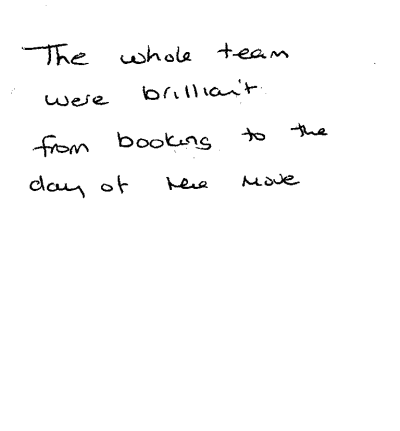 The whole team
were brilliant
from booking to the
day of the move